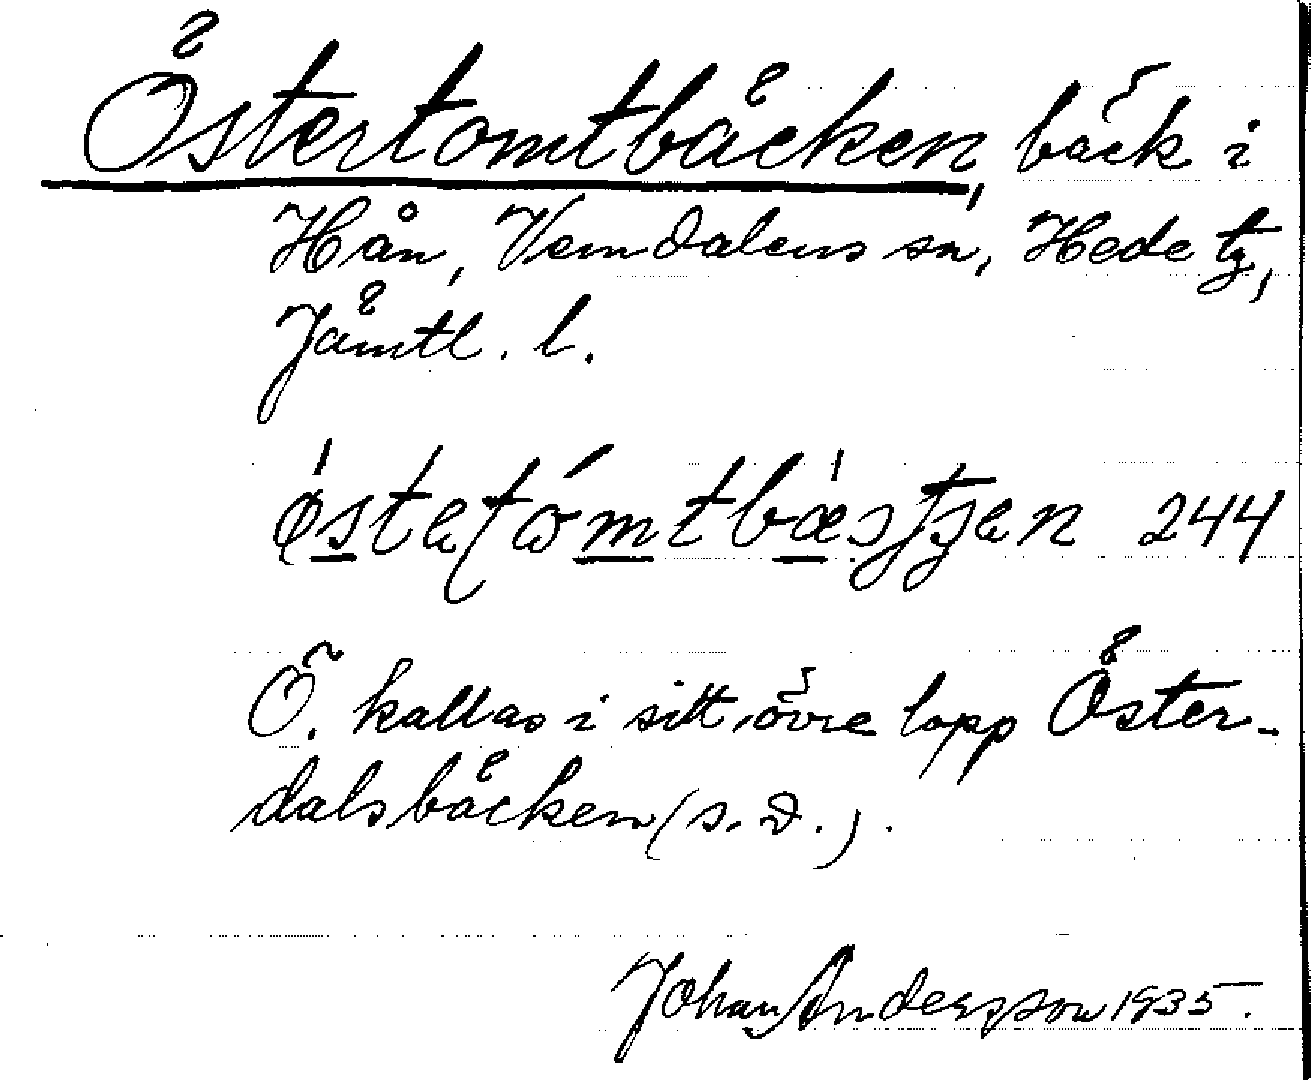 Östertomtbäcken, bäck i
Hån, Vemdalens sn, Hede tg,
Jämtl. l.
244
Ö. kallas i sitt övre lopp Öster-
dalsbäcken (s. d.).
Johan Andersson 1935.